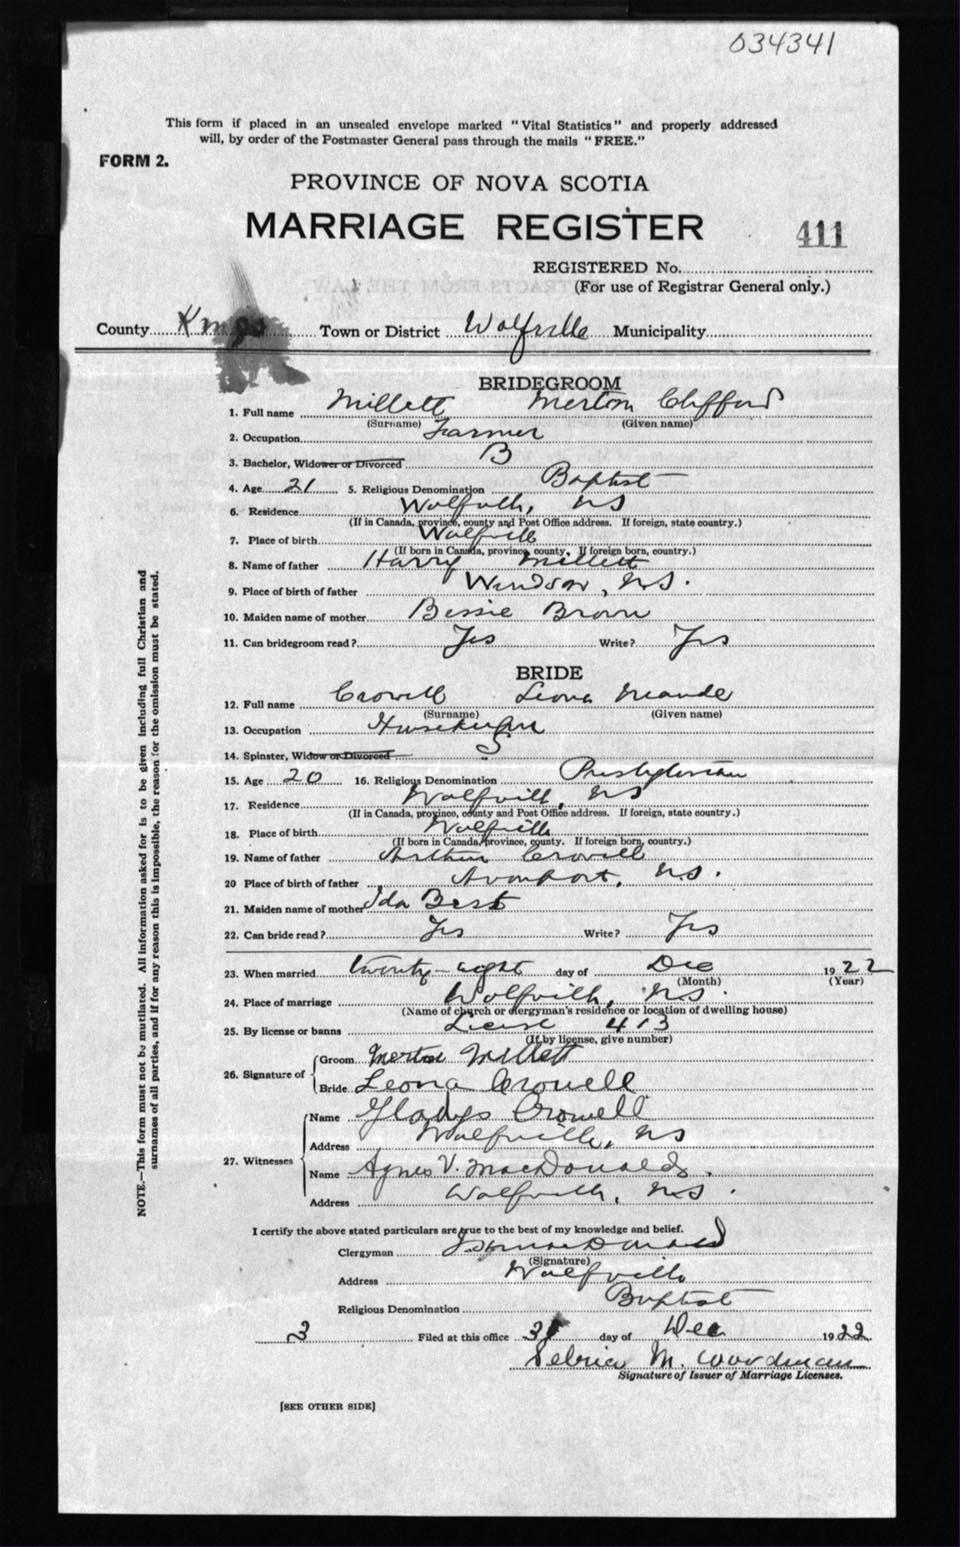 034341
This form if placed in an unsealed envelope marked "Vital Statistics" and properly addressed
will, by order of the Postmaster General pass through the mails "FREE."
FORM 2.
PROVINCE OF NOVA SCOTIA
MARRIAGE REGISTER
411
REGISTERED No.
(For use of Registrar General only.)
County Kings Town or District Wolfville Municipality
BRIDEGROOM
1. Full name Millett Merton Clifford
(Surname) (Given name)
2. Occupation Farmer
3. Bachelor, Widower or Divorced B
4. Age 21 5. Religious Denomination Baptist
6. Residence Wolfville, NS
(If in Canada, province, county and Post Office address. If foreign, state country.)
7. Place of birth Wolfville
(If born in Canada, province, county. If foreign born, country.)
8. Name of father Harry Millett
9. Place of birth of father Windsor, N.S.
10. Maiden name of mother Bessie Brown
11. Can bridegroom read? Yes Write? Yes
BRIDE
12. Full name Crowell Leona Maude
(Surname) (Given name)
13. Occupation Housekeeper
14. Spinster, Widow or Divorced S
15. Age 20 16. Religious Denomination Presbyterian
17. Residence Wolfville, NS
(If in Canada, province, county and Post Office address. If foreign, state country.)
18. Place of birth Wolfville
(If born in Canada, province, county. If foreign born, country.)
19. Name of father Arthur Crowell
20 Place of birth of father Avonport, N.S.
21. Maiden name of mother Ida Best
22. Can bride read? Yes Write? Yes
23. When married twenty-eight day of Dec 1922
(Month) (Year)
24. Place of marriage Wolfville, N.S.
(Name of church or clergyman's residence or location of dwelling house)
25. By license or banns License 413
(If by license, give number)
26. Signature of Groom Merton Millett
Bride Leona Crowell
27. Witnesses Name Gladys Crowell
Address Wolfville, NS
Name Agnes V. MacDonald
Address Wolfville, N.S.
I certify the above stated particulars are true to the best of my knowledge and belief.
Clergyman MacDonald
(Signature)
Address Wolfville
Religious Denomination Baptist
3 Filed at this office 31 day of Dec 1922
M. Woodman
Signature of Issuer of Marriage Licenses.
[SEE OTHER SIDE]
NOTE.—This form must not be mutilated. All information asked for is to be given including full Christian and
surnames of all parties, and if for any reason this is impossible, the reason for the omission must be stated.